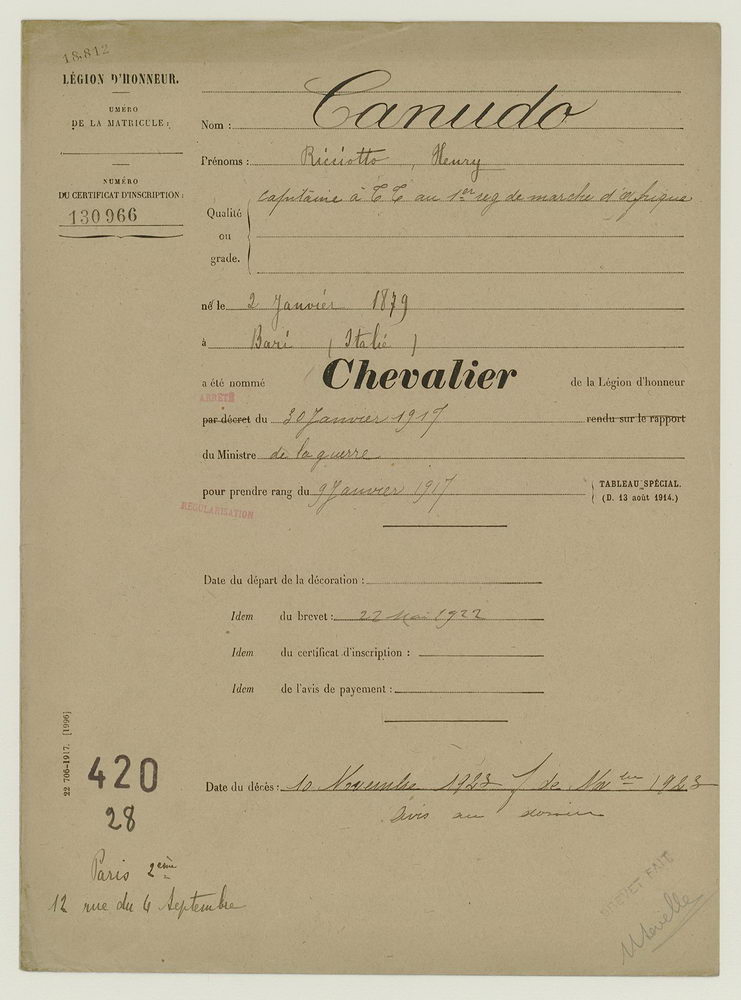 18.812
LÉGION D'HONNEUR.
UMÉRO
DE LA MATRICULE :
NUMÉRO
DU CERTIFICAT D'INSCRIPTION :
130966
Nom : Canudo
Prénoms : Ricciotto, Henry
Qualité ou grade. capitaine à T T au 1er reg de marche d'Afrique
né le 2 Janvier 1879
à Bari (Italie)
a été nommé Chevalier de la Légion d'honneur
ARRÊTÉ
par décret du 30 Janvier 1917 rendu sur le rapport
du Ministre de la guerre
pour prendre rang du 9 Janvier 1917
TABLEAU SPÉCIAL.
(D. 13 août 1914.)
REGULARISATION
Date du départ de la décoration :
Idem du brevet : 22 Mai 1922
Idem du certificat d'inscription :
Idem de l'avis de payement :
22 706-1917. [1996]
420
28
Date du décès : 10 Novembre 1923 de Nov bre 1923
Avis au dossier
Paris 2ème
12 rue du 4 Septembre
BREVET FAIT